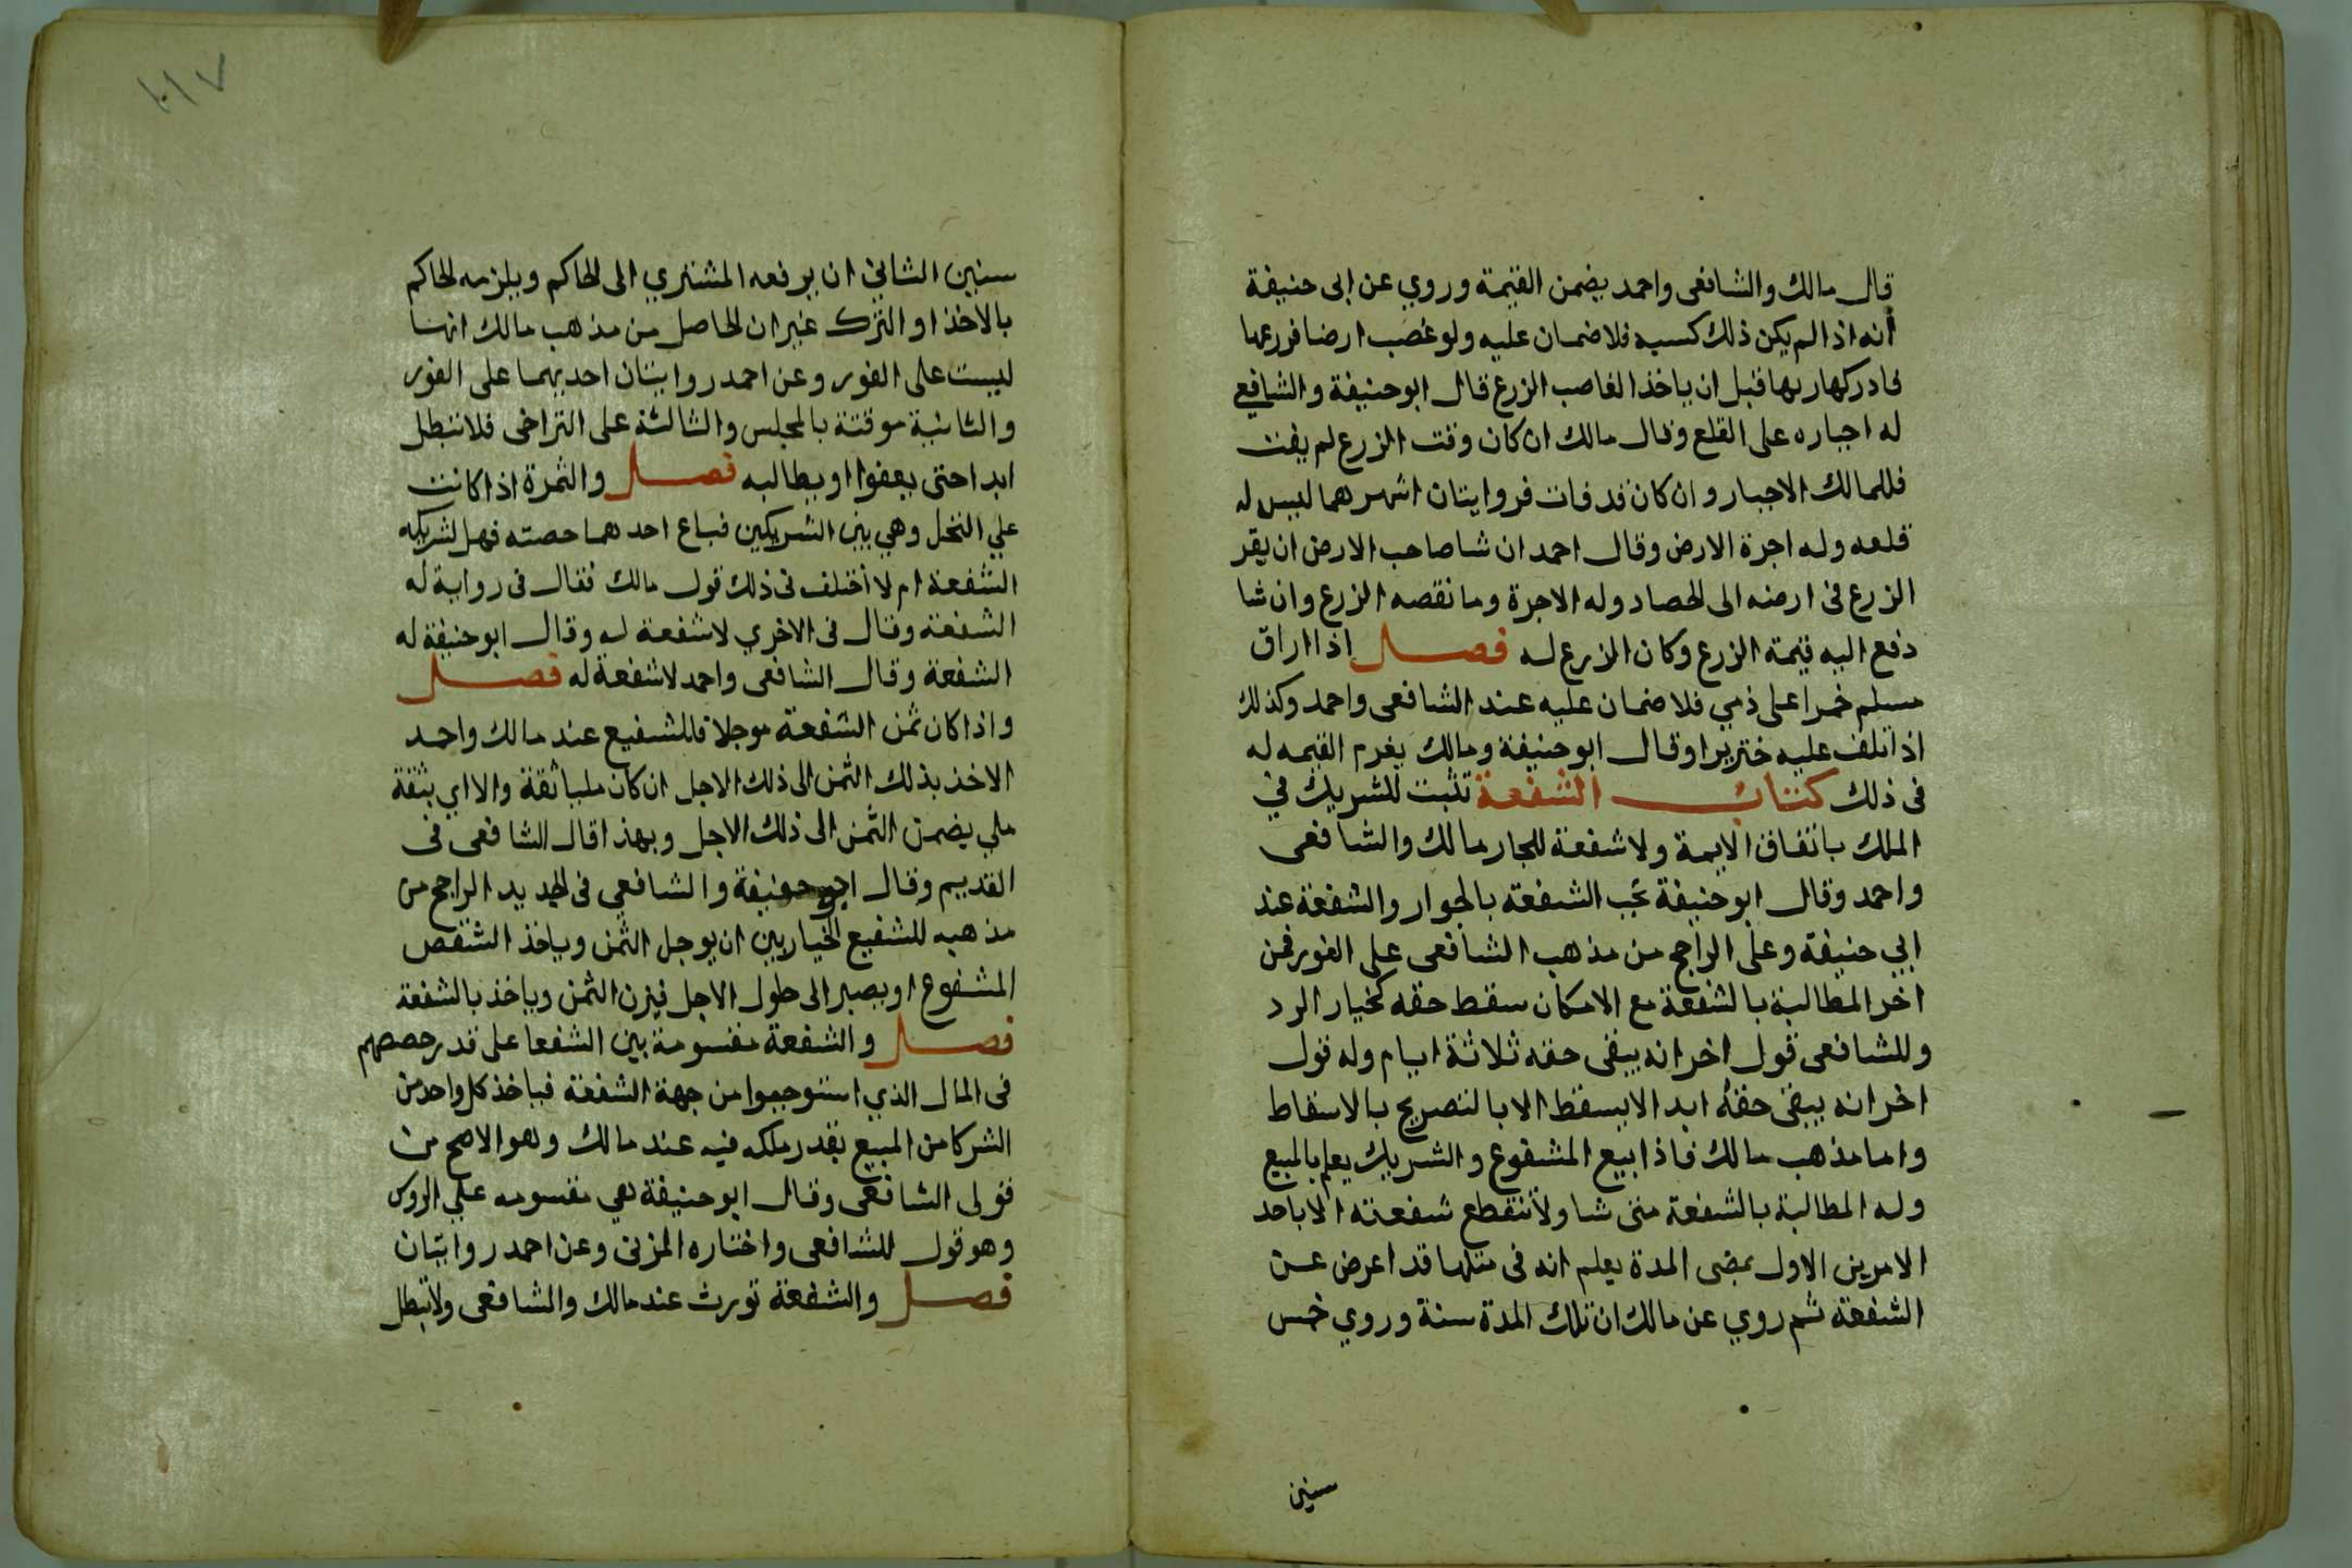 قال مالك والشافعى واحمد يضمن القيمة وروي عن ابى حنيفة
أنه اذا لم يكن ذلك كسبه فلا ضمان عليه ولو غصب ارضا فزرعها
فادركها ربها قبل ان ياخذ الغاصب الزرع قال ابو حنيفة والشافعي
له اجباره على القلع وقال مالك ان كان وقت الزرع لم يفت
فللمالك الاجبار وان كان قد فات فروايتان اشهرهما ليس له
قلعه وله اجرة الارض وقال احمد ان شا صاحب الارض ان يقر
الزرع فى ارضه الى الحصاد وله الاجرة وما نقصه الزرع وان شا
دفع اليه قيمة الزرع وكان الزرع له فصل اذا اراق
مسلم خمرا على ذمي فلا ضمان عليه عند الشافعى واحمد وكذلك
اذا تلف عليه خنزيرا وقال ابو حنيفة ومالك يغرم القيمه له
فى ذلك كتاب الشفعة تثبت للشريك في
الملك باتفاق الايمة ولا شفعة للجار مالك والشافعى
واحمد وقال ابو حنيفة تجب الشفعة بالجوار والشفعة عند
ابي حنيفة وعلى الراجح من مذهب الشافعى على الفور فمن
اخر المطالبة بالشفعة مع الامكان سقط حقه كخيار الرد
وللشافعى قول اخر انه يبقى حقه ثلاثة ايام وله قول
اخر انه يبقى حقه ابدا لا يسقط الا بالتصريح بالاسقاط
واما مذهب مالك فاذا بيع المشفوع والشريك يعلم بالمبيع
وله المطالبة بالشفعة متى شا ولا تنقطع شفعته الا باحد
الامرين الاول بمضى المدة يعلم انه فى مثلها قد اعرض عن
الشفعة ثم روي عن مالك ان تلك المدة سنة وروي خمس
سنين
١١٧
سنين الثاني ان يرفعه المشتري الى الحاكم ويلزمه الحاكم
بالاخذ او الترك غير ان الحاصل من مذهب مالك انها
ليست على الفور وعن احمد روايتان احديهما على الفور
والثانية موقتة بالمجلس والثالثة على التراخى فلا تبطل
ابدا حتى يعفوا او يطالبه فصل والثمرة اذا كانت
علي النخل وهي بين الشريكين فباع احدهما حصته فهل لشريكه
الشفعة ام لا اختلف فى ذلك قول مالك فقال فى رواية له
الشفعة وقال فى الاخري لا شفعة له وقال ابو حنيفة له
الشفعة وقال الشافعى واحمد لا شفعة له فصل
واذا كان ثمن الشفعة موجلا فللشفيع عند مالك واحمد
الاخذ بذلك الثمن الى ذلك الاجل ان كان مليا ثقة والا اي بثقة
ملي يضمن الثمن الى ذلك الاجل وبهذا قال الشافعى فى
القديم وقال ابو حنيفة والشافعي فى الجديد الراجح من
مذهبه للشفيع الخيار بين ان يوجل الثمن وياخذ الشقص
المشفوع او يصبر الى طول الاجل فيزن الثمن وياخذ بالشفعة
فصل والشفعة مقسومة بين الشفعا على قدر حصصهم
فى المال الذي استوجبوا من جهة الشفعة فياخذ كل واحد من
الشركا من المبيع بقدر ملكه فيه عند مالك وهو الاصح من
قولى الشافعى وقال ابو حنيفة هي مقسومه علي الروس
وهو قول للشافعى واختاره المزنى وعن احمد روايتان
فصل والشفعة تورث عند مالك والشافعى ولا تبطل